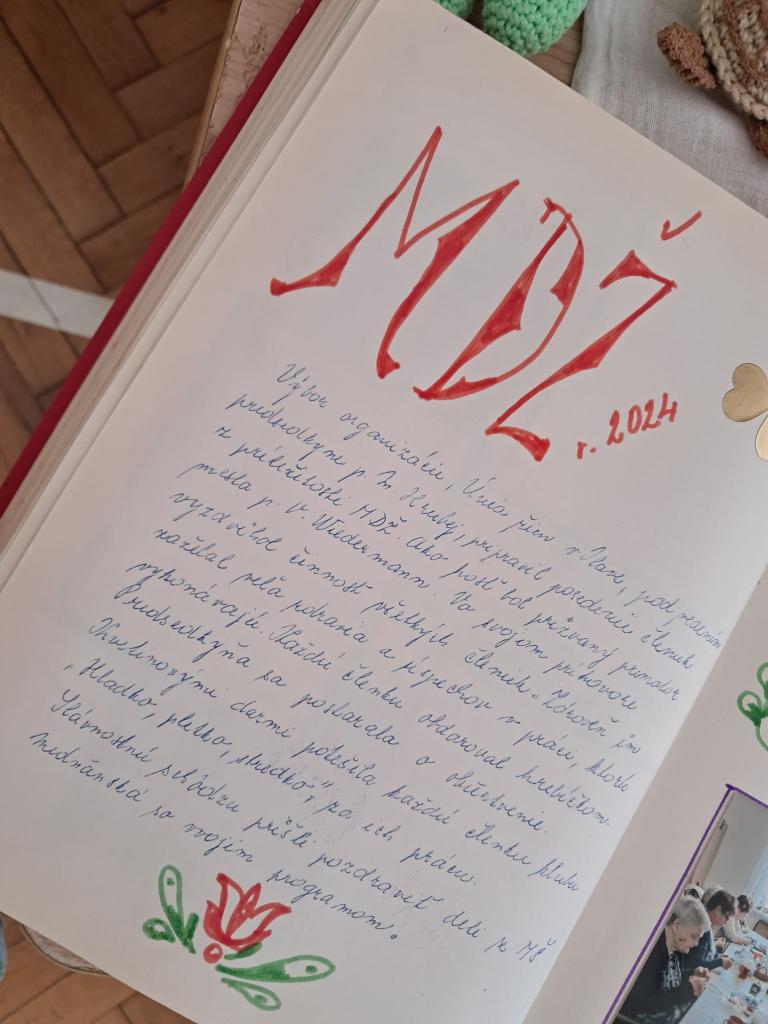 MDŽ
r. 2024
Výbor organizácie, Únia žien v Ilave, pod vedením
predsedkyne p. Hrubej, pripravil posedenie členiek
z príležitosti MDŽ. Ako hosť bol prizvaný primátor
mesta p. V. Wiedermann. Vo svojom príhovore
vyzdvihol činnosť všetkých členiek. Zároveň im
zaželal veľa zdravia a úspechov v práci, ktorú
vykonávajú. Každú členku obdaroval hrebíčkom.
Predsedkyňa sa postarala o občerstvenie.
darmi potešila každú členku klubu
„Hladko, pletko, stredko", za ich prácu.
Slávnostnú schôdzu prišli pozdraviť deti z MŠ
Medňanská so svojim programom.